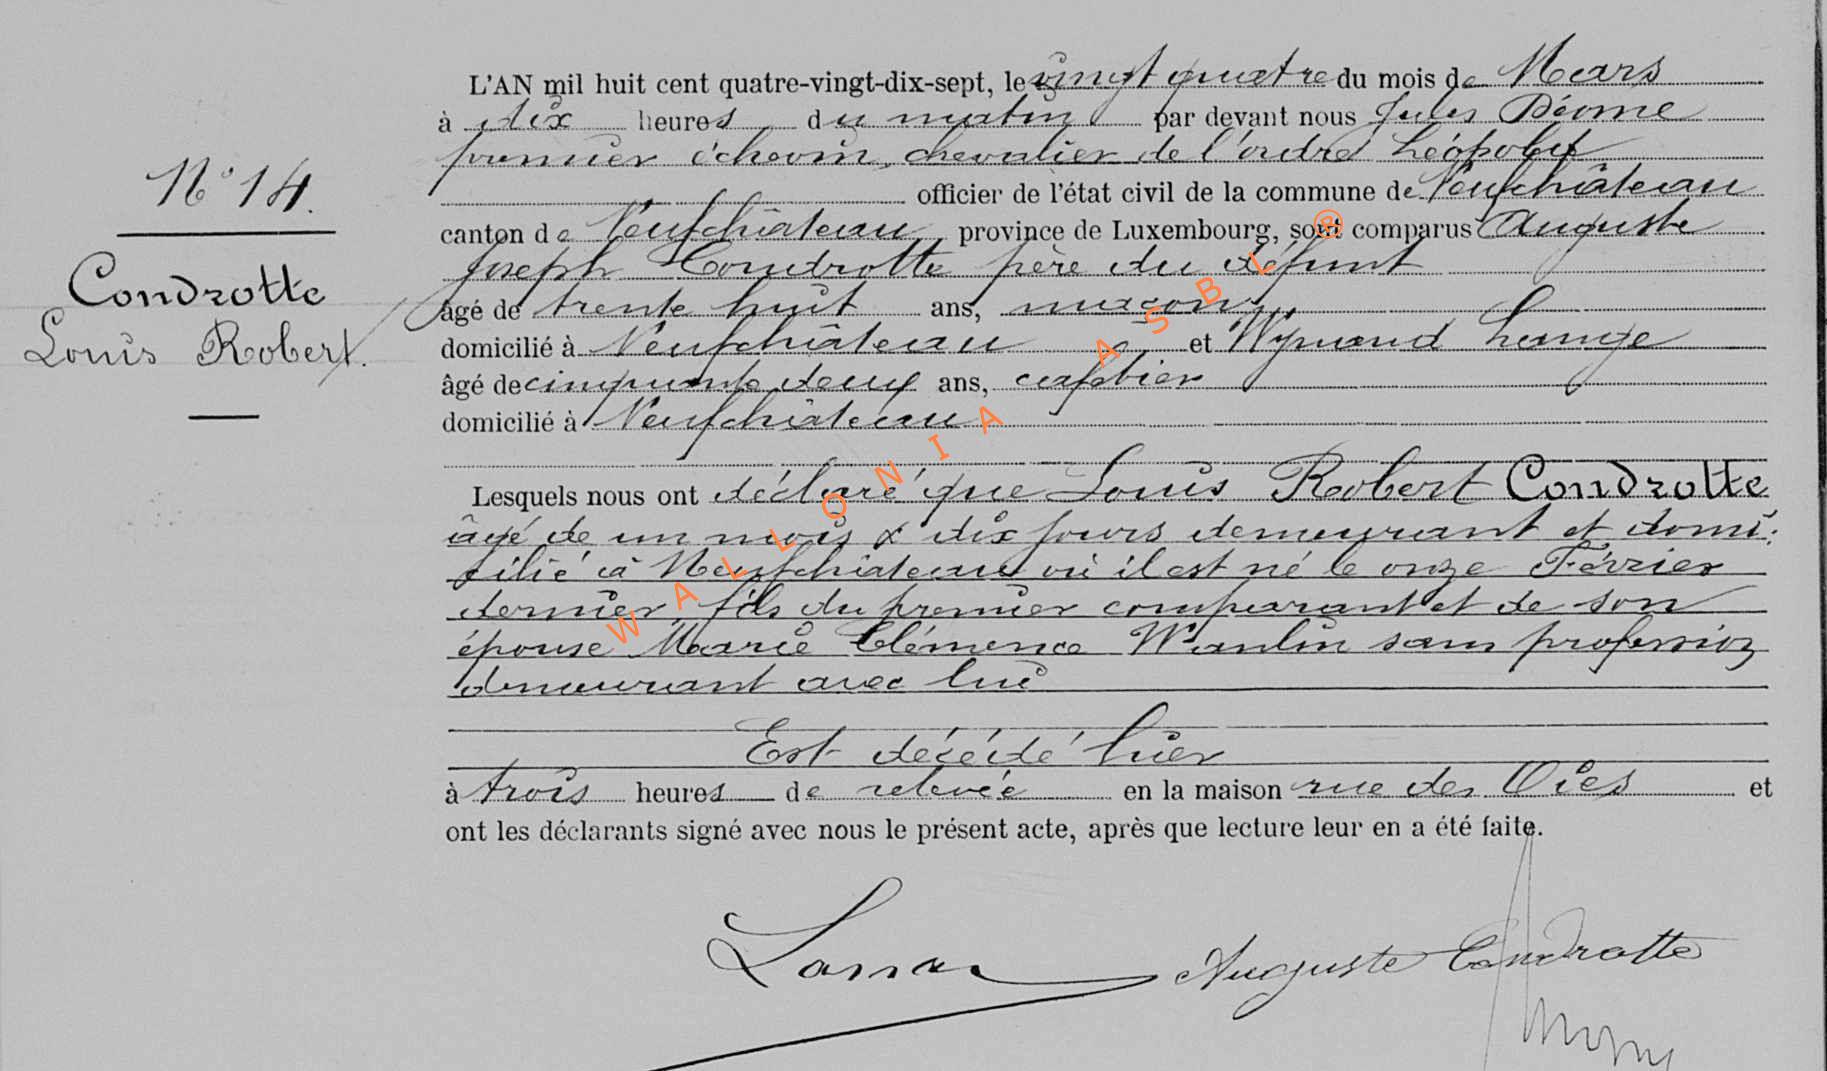 N° 14.
Condrotte
Louis Robert.
L'AN mil huit cent quatre-vingt-dix-sept, le vingt quatre du mois de Mars
à dix heures du matin par devant nous Jules
premier échevin, chevalier de l'ordre Léopold
officier de l'état civil de la commune de Neufchâteau
canton de Neufchâteau province de Luxembourg, sont comparus Auguste
Joseph Condrotte père du défunt
âgé de trente huit ans, maçon,
domicilié à Neufchâteau et Wynand Lange
âgé de cinquante deux ans, cafetier
domicilié à Neufchâteau
Lesquels nous ont déclaré que Louis Robert Condrotte
âgé de un mois & dix jours demeurant et domi:
cilié à Neufchâteau où il est né le onze Février
dernier, fils du premier comparant et de son
épouse Marie Clémence Wanlin sans profession
demeurant avec lui
Est décédé hier
à trois heures de relevée en la maison rue des Oies et
ont les déclarants signé avec nous le présent acte, après que lecture leur en a été faite.
Auguste Condrotte
WALLONIA ASBL ®